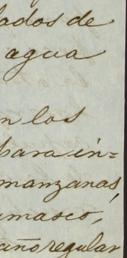 lados de
agua
en los
para in=
manzanas,
amasco,
año regular